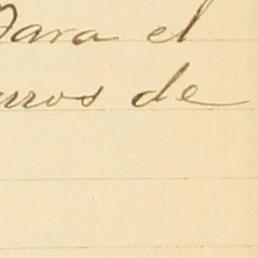 Para el
rros de